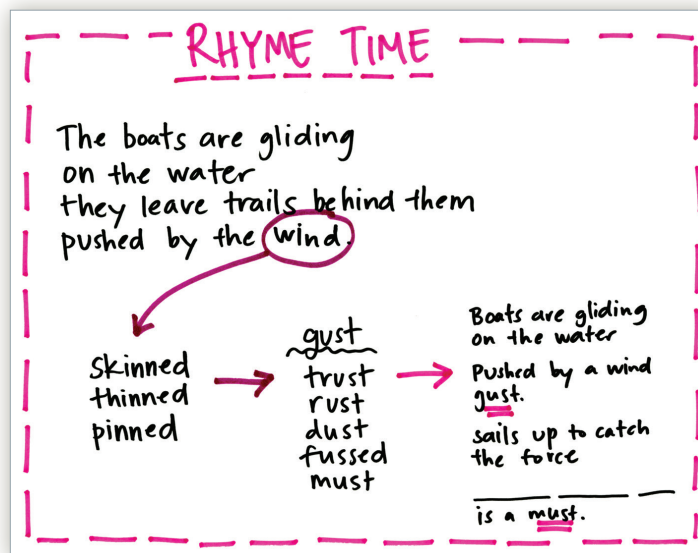 RHYME TIME
The boats are gliding
on the water
they leave trails behind them
pushed by the wind.
skinned
thinned
pinned
gust
trust
rust
dust
fussed
must
Boats are gliding
on the water
Pushed by a wind
gust.
sails up to catch
the force
is a must.